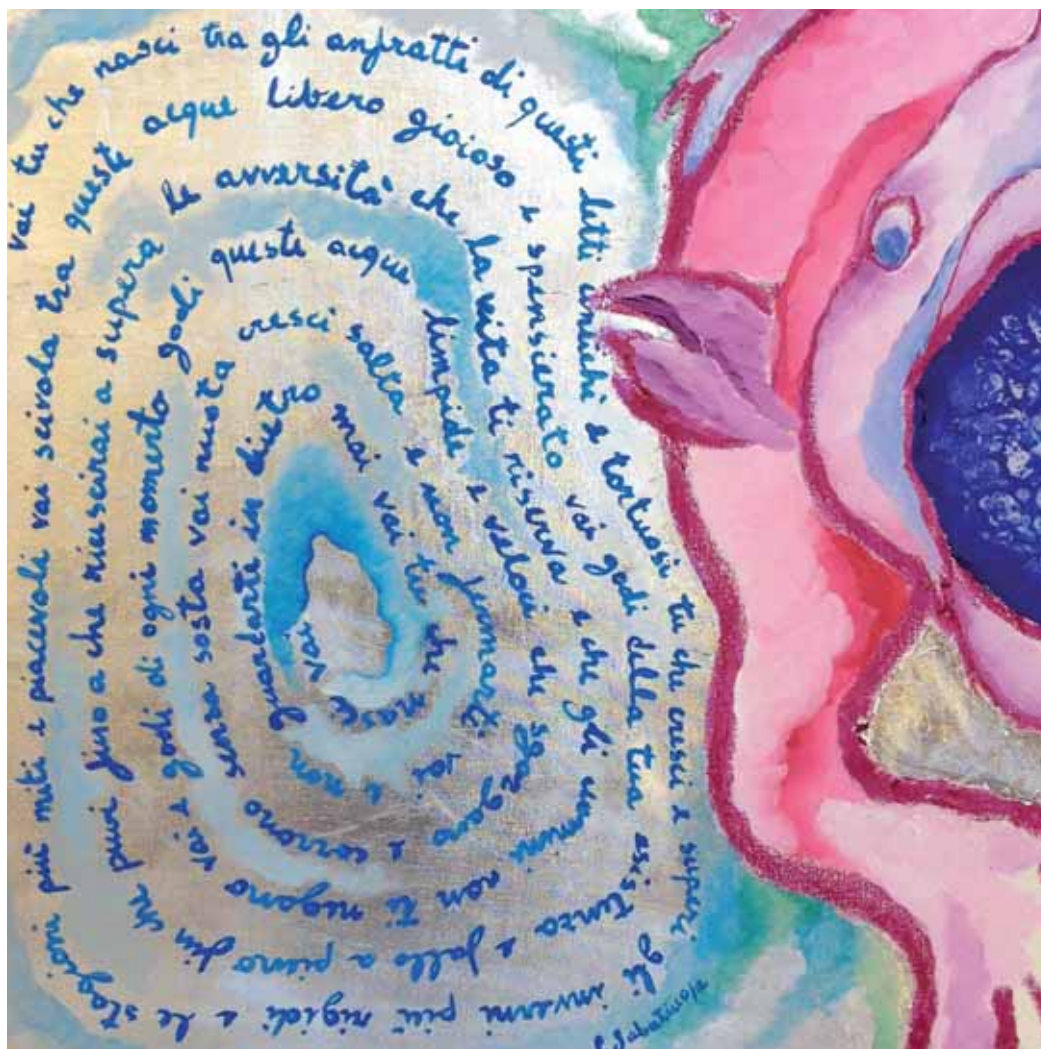 vai tu che nasci tra gli anfratti di questi letti antichi e tortuosi tu che cresci e superi gli inverni più rigidi e le stagioni più miti e piacevoli
vai scivola tra queste acque libero gioioso e spensierato vai godi della tua esistenza e fallo a pieno fin che puoi
fino a che riuscirai a supera le avversità che la vita ti riserva e che gli uomini non ti negano
vai e godi di ogni momento godi queste acque limpide e veloci che sgorgano e corrono
senza sosta vai nuota cresci salta e non fermarti vai
e non guardarti in dietro mai vai tu che nasci vai